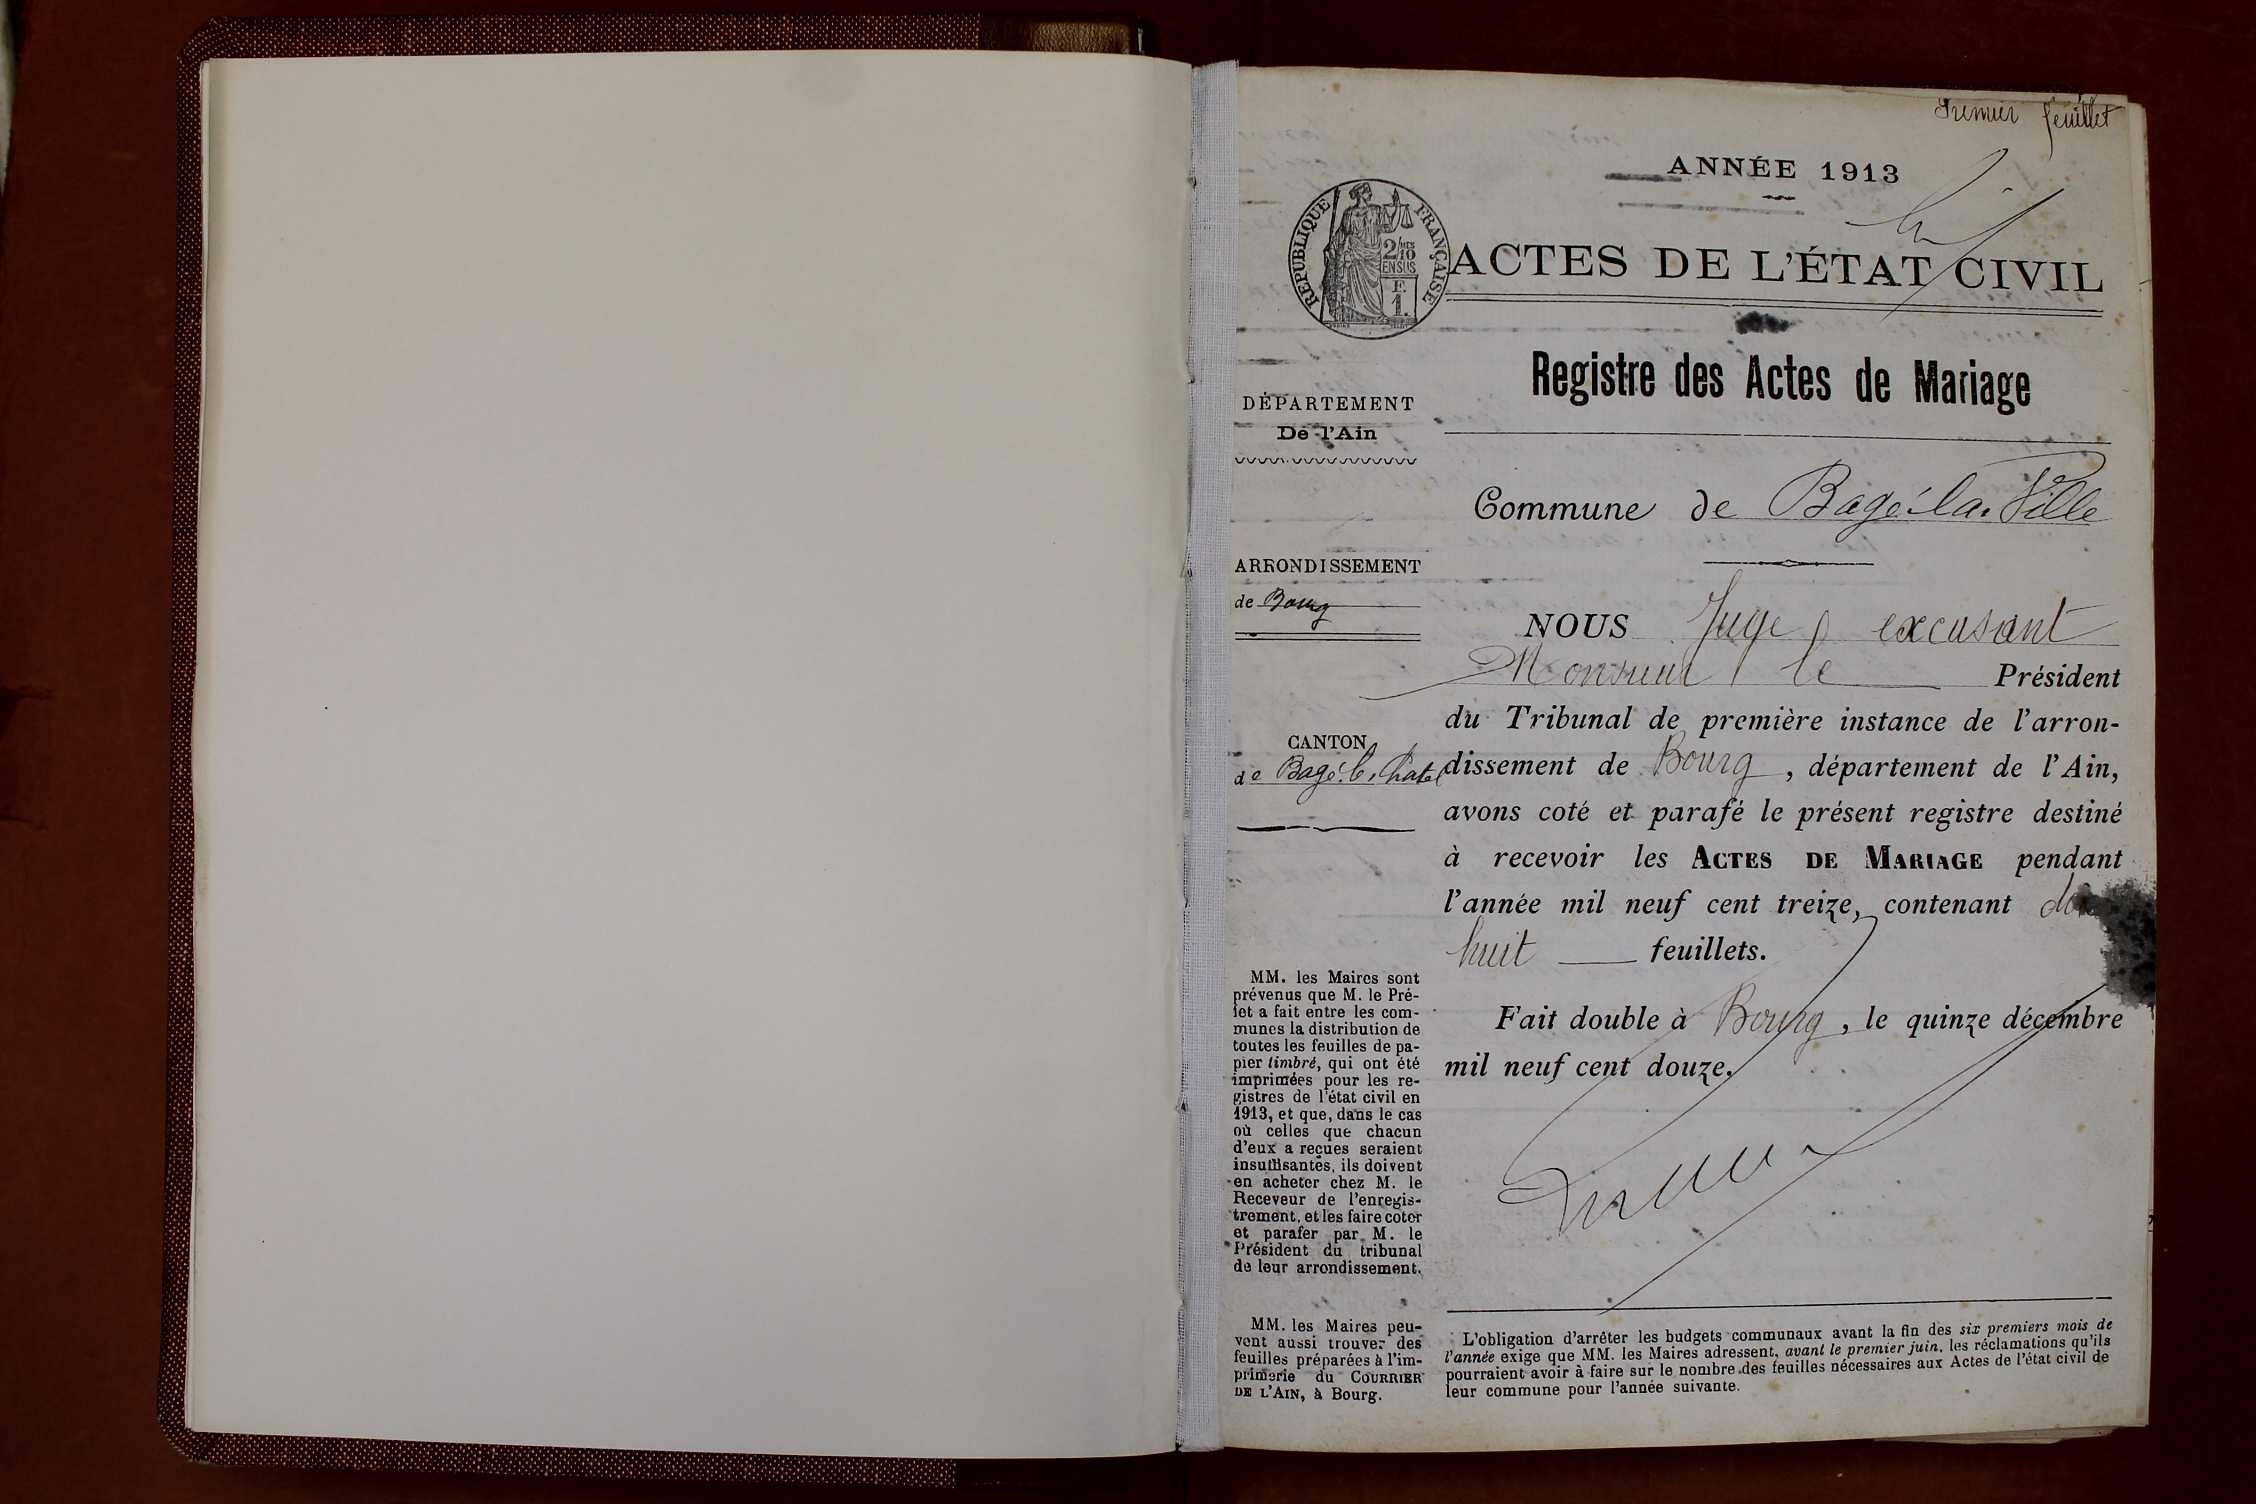 Premier feuillet
ANNÉE 1913
RÉPUBLIQUE FRANÇAISE
2/10
EN SUS
F.
1.
ACTES DE L'ÉTAT CIVIL
Registre des Actes de Mariage
DÉPARTEMENT
De l'Ain
ARRONDISSEMENT
de Bourg
CANTON
de Bagé-le-Chatel
MM. les Maires sont
prévenus que M. le Pré-
fet a fait entre les com-
munes la distribution de
toutes les feuilles de pa-
pier timbré, qui ont été
imprimées pour les re-
gistres de l'état civil en
1913, et que, dans le cas
où celles que chacun
d'eux a reçues seraient
insuffisantes, ils doivent
en acheter chez M. le
Receveur de l'enregis-
trement, et les faire coter
et parafer par M. le
Président du tribunal
de leur arrondissement.
MM. les Maires peu-
vent aussi trouver des
feuilles préparées à l'im-
primerie du COURRIER
DE L'AIN, à Bourg.
Commune de Bagé-la-Ville
NOUS Juge excusant
Monsieur le Président
du Tribunal de première instance de l'arron-
dissement de Bourg, département de l'Ain,
avons coté et parafé le présent registre destiné
à recevoir les ACTES DE MARIAGE pendant
l'année mil neuf cent treize, contenant
huit feuillets.
Fait double à Bourg, le quinze décembre
mil neuf cent douze.
L'obligation d'arrêter les budgets communaux avant la fin des six premiers mois de
l'année exige que MM. les Maires adressent, avant le premier juin, les réclamations qu'ils
pourraient avoir à faire sur le nombre des feuilles nécessaires aux Actes de l'état civil de
leur commune pour l'année suivante.